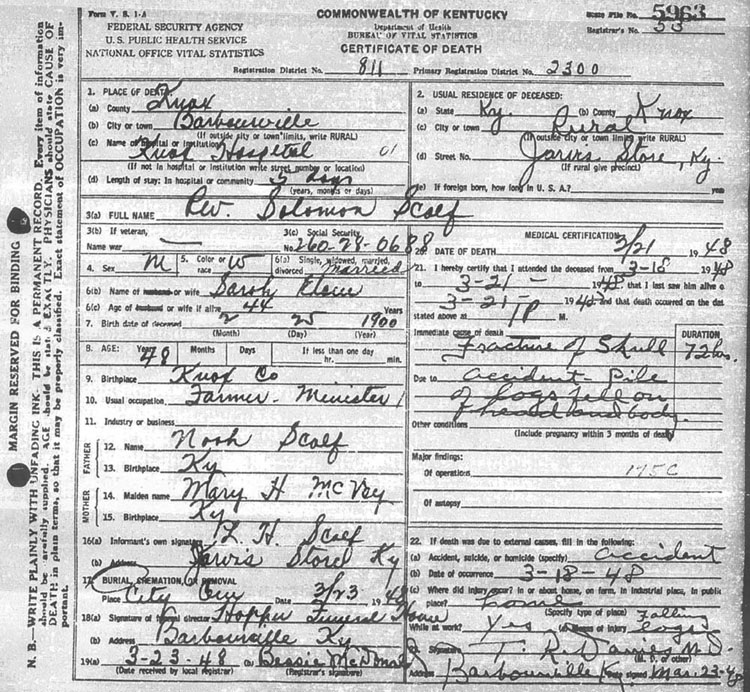 Form V. S. 1-A
COMMONWEALTH OF KENTUCKY
State File No. 5963
FEDERAL SECURITY AGENCY
Department of Health
Registrar's No. 53
U. S. PUBLIC HEALTH SERVICE
BUREAU OF VITAL STATISTICS
NATIONAL OFFICE VITAL STATISTICS
CERTIFICATE OF DEATH
Registration District No. 811 Primary Registration District No. 2300
MARGIN RESERVED FOR BINDING
N. B.—WRITE PLAINLY WITH UNFADING INK. THIS IS A PERMANENT RECORD. Every item of information
should be carefully supplied. AGE should be stated EXACTLY. PHYSICIANS should state CAUSE OF
DEATH in plain terms, so that it may be properly classified. Exact statement of OCCUPATION is very im-
portant.
1. PLACE OF DEATH
(a) County Knox
(b) City or town Barbourville
(If outside city or town limits, write RURAL)
(c) Name of hospital or institution Knox Hospital 01
(If not in hospital or institution write street number or location)
(d) Length of stay: In hospital or community 3 days
(years, months or days)
2. USUAL RESIDENCE OF DECEASED:
(a) State Ky. (b) County Knox
(c) City or town Rural
(If outside city or town limits write RURAL)
(d) Street No. Jarvis Store, Ky.
(If rural give precinct)
(e) If foreign born, how long in U. S. A.? years
3(a) FULL NAME Rev. Solomon Scalf
3(b) If veteran, 3(c) Social Security
Name war — No. 260-28-0688
4. Sex M 5. Color or race W 6(a) Single, widowed, married, divorced Married
6(b) Name of husband or wife Sarah
6(c) Age of husband or wife if alive 44 Years
7. Birth date of deceased 2 25 1900
(Month) (Day) (Year)
8. AGE Years 48 Months Days If less than one day
hr. min.
9. Birthplace Knox Co
10. Usual occupation Farmer-Minister
11. Industry or business
FATHER
12. Name Noah Scalf
13. Birthplace Ky
MOTHER
14. Maiden name Mary H McVey
15. Birthplace Ky
16(a) Informant's own signature L. H. Scalf
(b) Address Jarvis Store Ky
17. BURIAL, CREMATION, OR REMOVAL
Place City Cem Date 3/23 1948
18(a) Signature of funeral director Hopper Funeral Home
(b) Address Barbourville Ky
19(a) 3-23-48 (b) Bessie McDonald
(Date received by local registrar) (Registrar's signature)
MEDICAL CERTIFICATION
20. DATE OF DEATH 3/21 1948
21. I hereby certify that I attended the deceased from 3-18 1948
to 3-21- 1948 that I last saw him alive o
3-21- 1948 and that death occurred on the date
stated above at 1P M.
Immediate cause of death DURATION
Fracture of Skull 72 hrs.
Due to accident-Pile
of logs fell on
head and body.
Other conditions
(Include pregnancy within 3 months of death)
Major findings:
Of operations 175C
Of autopsy
22. If death was due to external causes, fill in the following:
(a) Accident, suicide, or homicide (specify) accident
(b) Date of occurrence 3-18-48
(c) Where did injury occur? In or about home, on farm, in industrial place, in public
place? home
(Specify type of place)
While at work? Yes Means of injury Falling logs
23. Signature T. R. Davies M.D.
(M. D. or other)
Address Barbourville Ky. Date signed Mar. 23-48